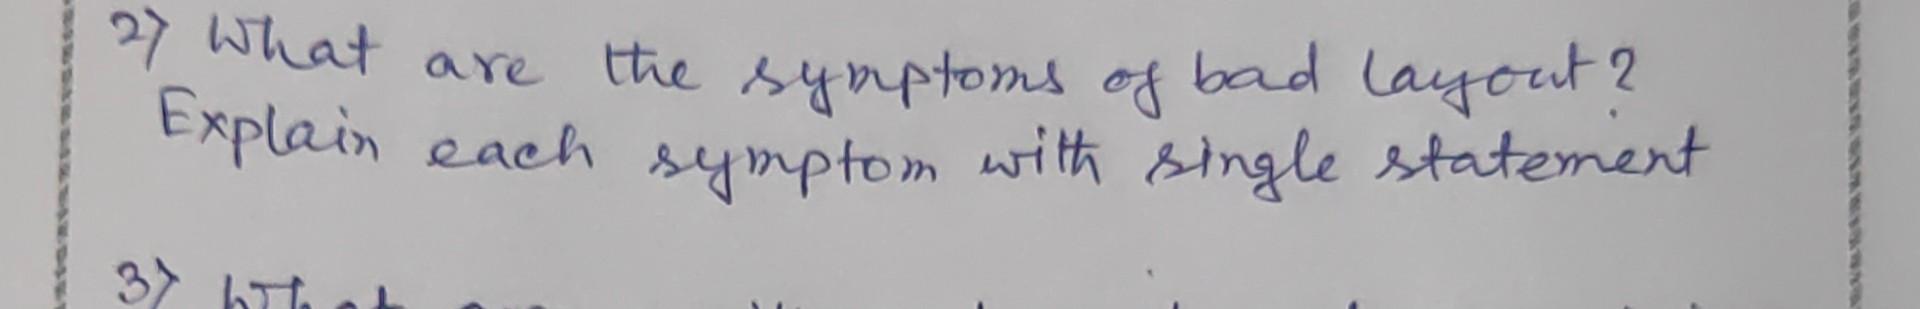 2) What are the symptoms of bad layout?
Explain each symptom with single statement
3) What